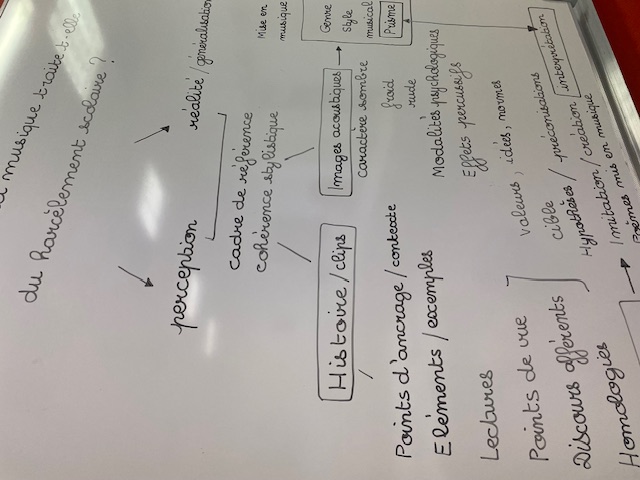 musique traite-t-elle
du harcèlement scolaire ?
perception
réalité / généralisation
cadre de référence
cohérence stylistique
Mise en
musique
Histoire / clips
Images acoustiques
caractère sombre
froid
rude
Genre
Style
musical
Prisme
Points d'ancrage / contexte
Modalités psychologiques
Eléments / exemples
Effets percussifs
Lectures
Points de vue
valeurs, idées, normes
Discours afférents
cible / préconisations
interprétation
Hypothèses / création
Homologies
Imitation / création
Poèmes mis en musique